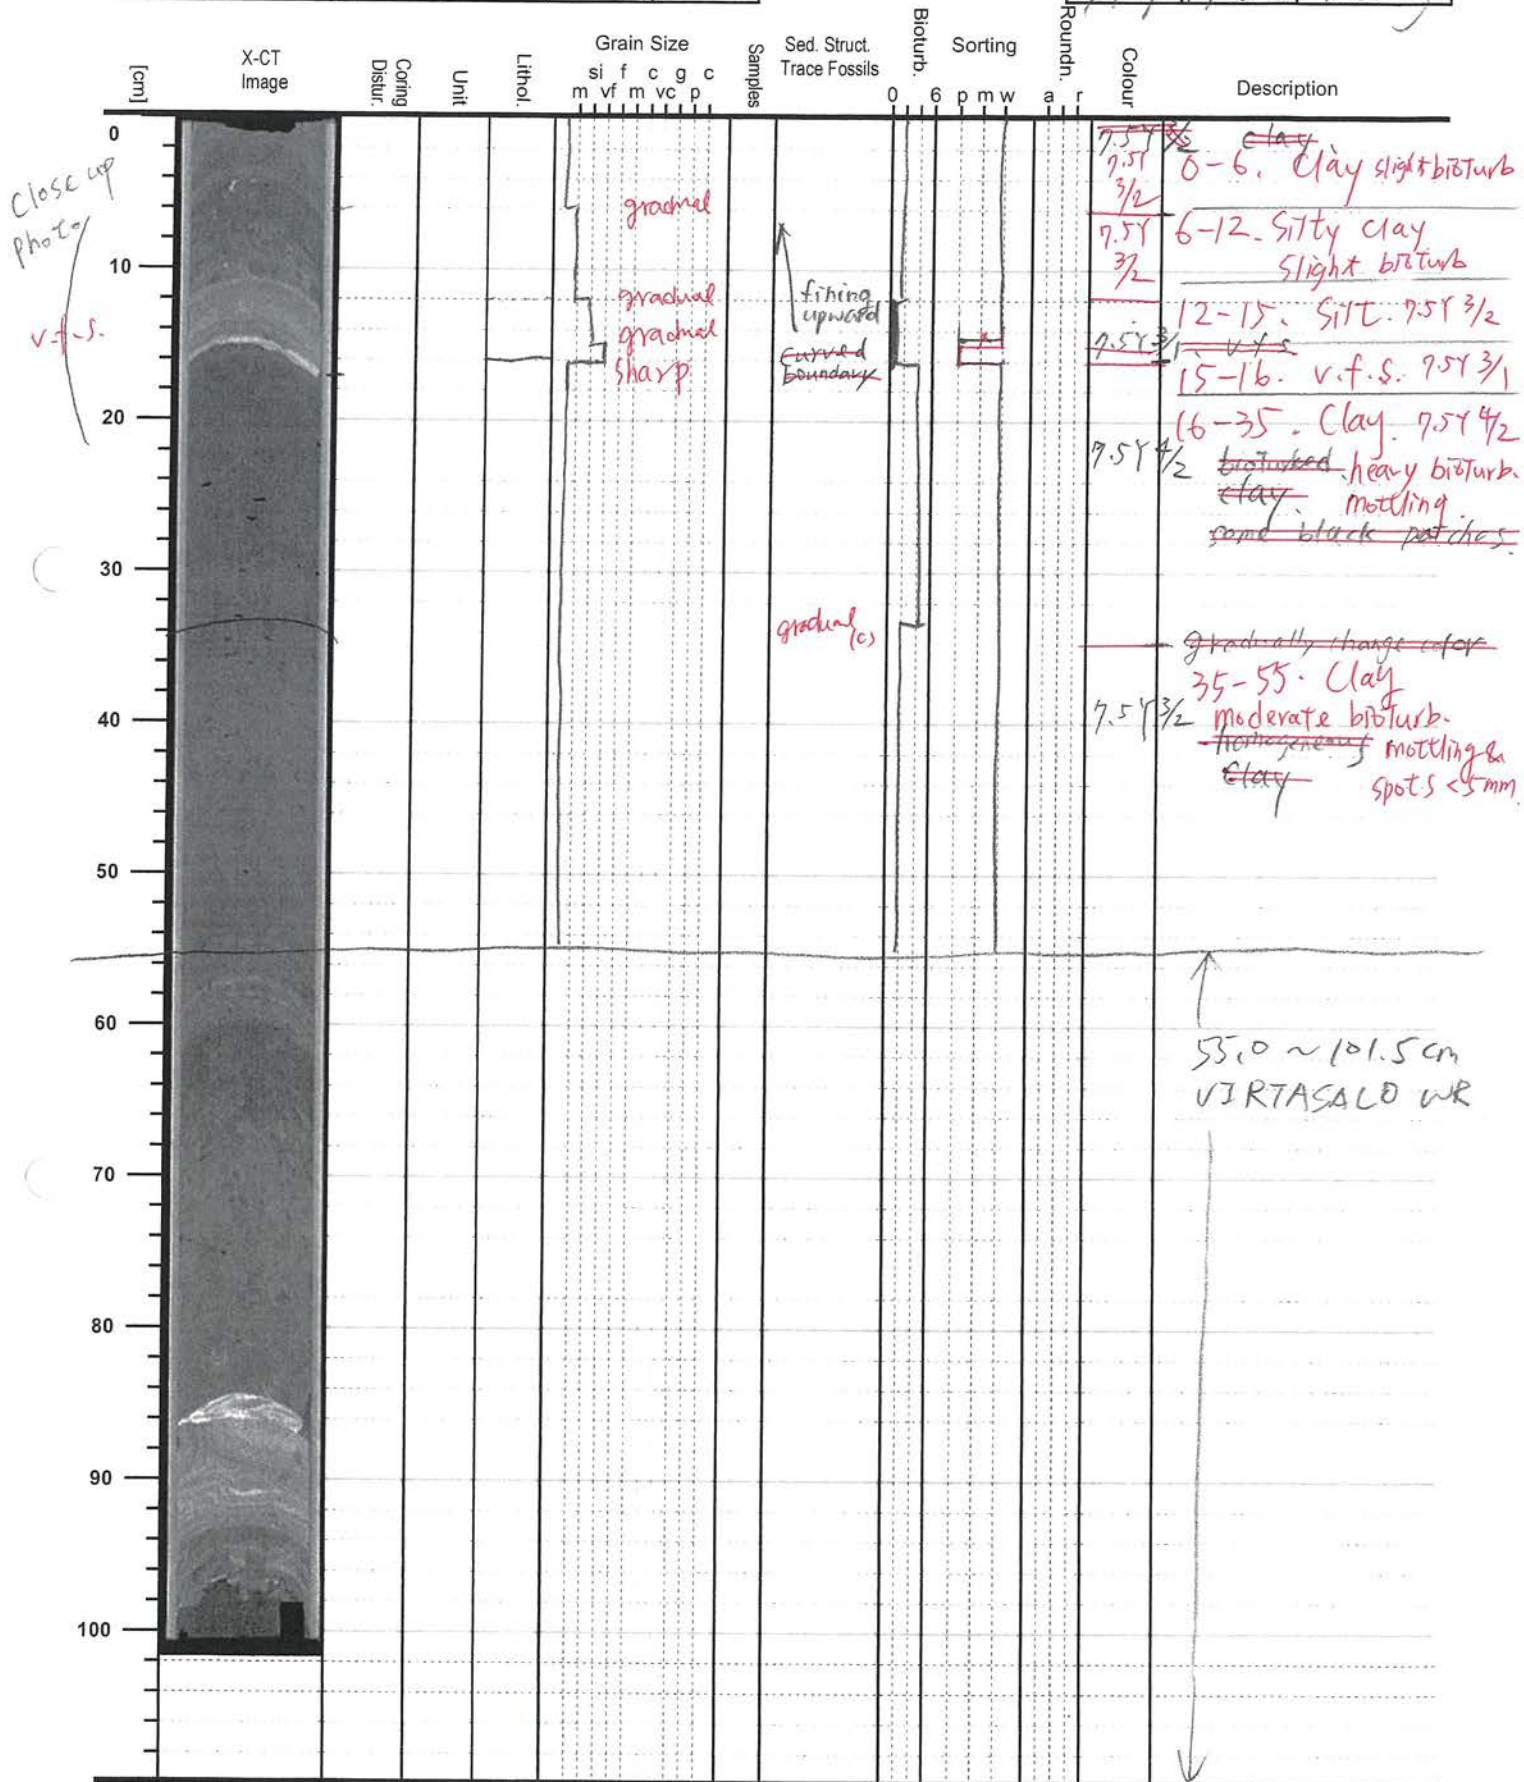 [cm]
X-CT
Image
Coring
Distur.
Unit
Lithol.
Grain Size
si f c g c
m vf m vc p
Samples
Sed. Struct.
Trace Fossils
Bioturb.
0 6
Sorting
p m w
Roundn.
a r
Colour
Description
0
10
20
30
40
50
60
70
80
90
100
Close up
photo
v.f.s.
gradual
gradual
gradual
sharp
fining
upward
curved
boundary
gradual (c)
7.5Y 3/2
7.5Y
3/2
7.5Y
3/2
7.5Y 3/1
7.5Y 4/2
7.5Y 3/2
clay
0-6. Clay slight bioturb
6-12. Silty clay
slight bioturb
12-15. Silt. 7.5Y 3/2
v.f.s.
15-16. v.f.s. 7.5Y 3/1
16-35. Clay. 7.5Y 4/2
bioturbed heavy bioturb.
clay. mottling.
some black patches.
gradually change color
35-55. Clay
moderate bioturb.
homogeneous mottling &
clay spots <5mm.
55.0 ~ 101.5 cm
VIRTASALO WR